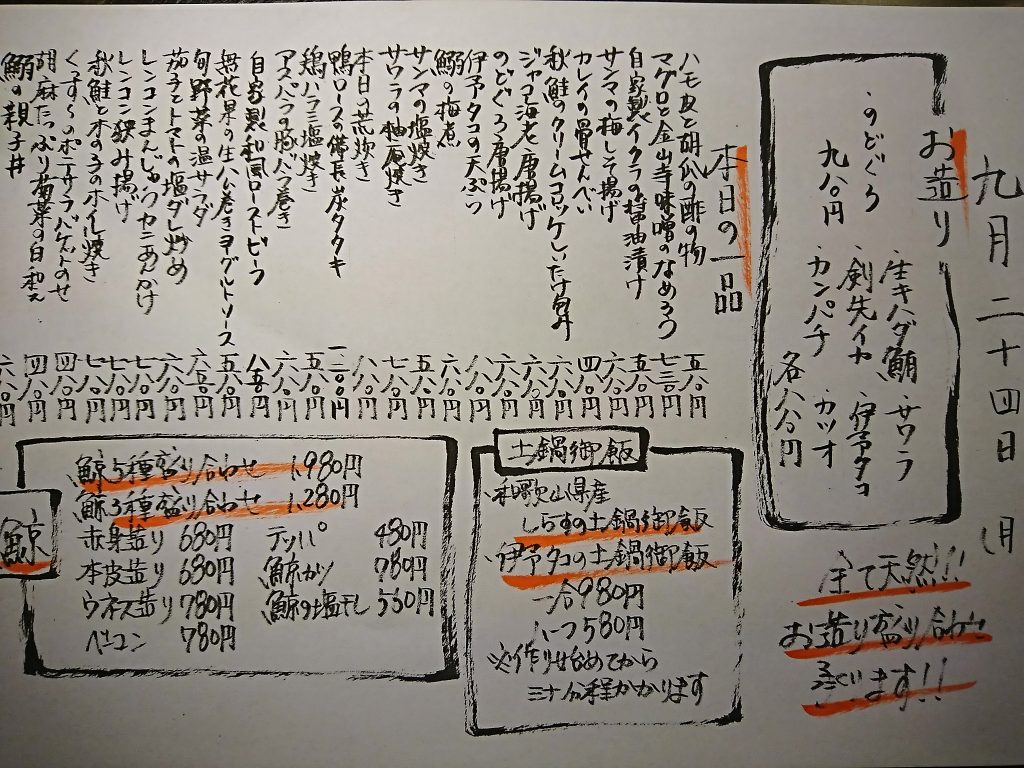 九月二十四日 月
お造り
・のどぐろ
九八〇円
・生キハダ鮪 ・サワラ
・剣先イカ ・伊予タコ
・カンパチ ・カツオ
各八八〇円
全て天然!!
お造り盛り合わせ
承ります!!
本日の一品
ハモ皮と胡瓜の酢の物 五八〇円
マグロと金山寺味噌のなめろう 七三〇円
自家製イクラの醤油漬け 五八〇円
サンマの梅しそ揚げ 六八〇円
カレイの骨せんべい 四八〇円
秋鮭のクリームコロッケしいたけ包み 六八〇円
ジャコと海老唐揚げ 六八〇円
のどぐろ唐揚げ
伊予タコの天ぷら 六八〇円
鰯の梅煮 六八〇円
サンマの塩焼き 五八〇円
サワラの柚庵焼き 七八〇円
本日の荒炊き 八八〇円
鴨ロースの備長炭タタキ 一二〇〇円
鶏ハラミ塩焼き 五八〇円
アスパラの豚バラ巻き 六八〇円
自家製和風ローストビーフ 八八〇円
無花果の生ハム巻きヨーグルトソース 五八〇円
旬野菜の温サラダ 六八〇円
茄子とトマトの塩ダレ炒め 六八〇円
レンコンまんじゅうカニあんかけ 七八〇円
レンコン挟み揚げ 七八〇円
秋鮭と木の子のホイル焼き 七八〇円
ポテサラバケットのせ 四八〇円
胡麻たっぷり菊菜の白和え 四八〇円
鰯の親子丼 六八〇円
土鍋御飯
・和歌山県産
しらすの土鍋御飯
・伊予タコの土鍋御飯
一合980円
ハーフ580円
※作り始めてから
三十分程かかります
鯨
鯨5種盛り合わせ 1,980円
鯨3種盛り合わせ 1,280円
赤身造り 680円 テッパ 480円
本皮造り 680円 鯨カツ 780円
ウネス造り 780円 鯨の塩干し 550円
ベーコン 780円